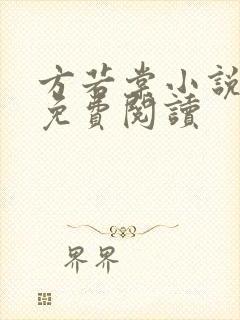 方若棠小說
免費閱讀
界界